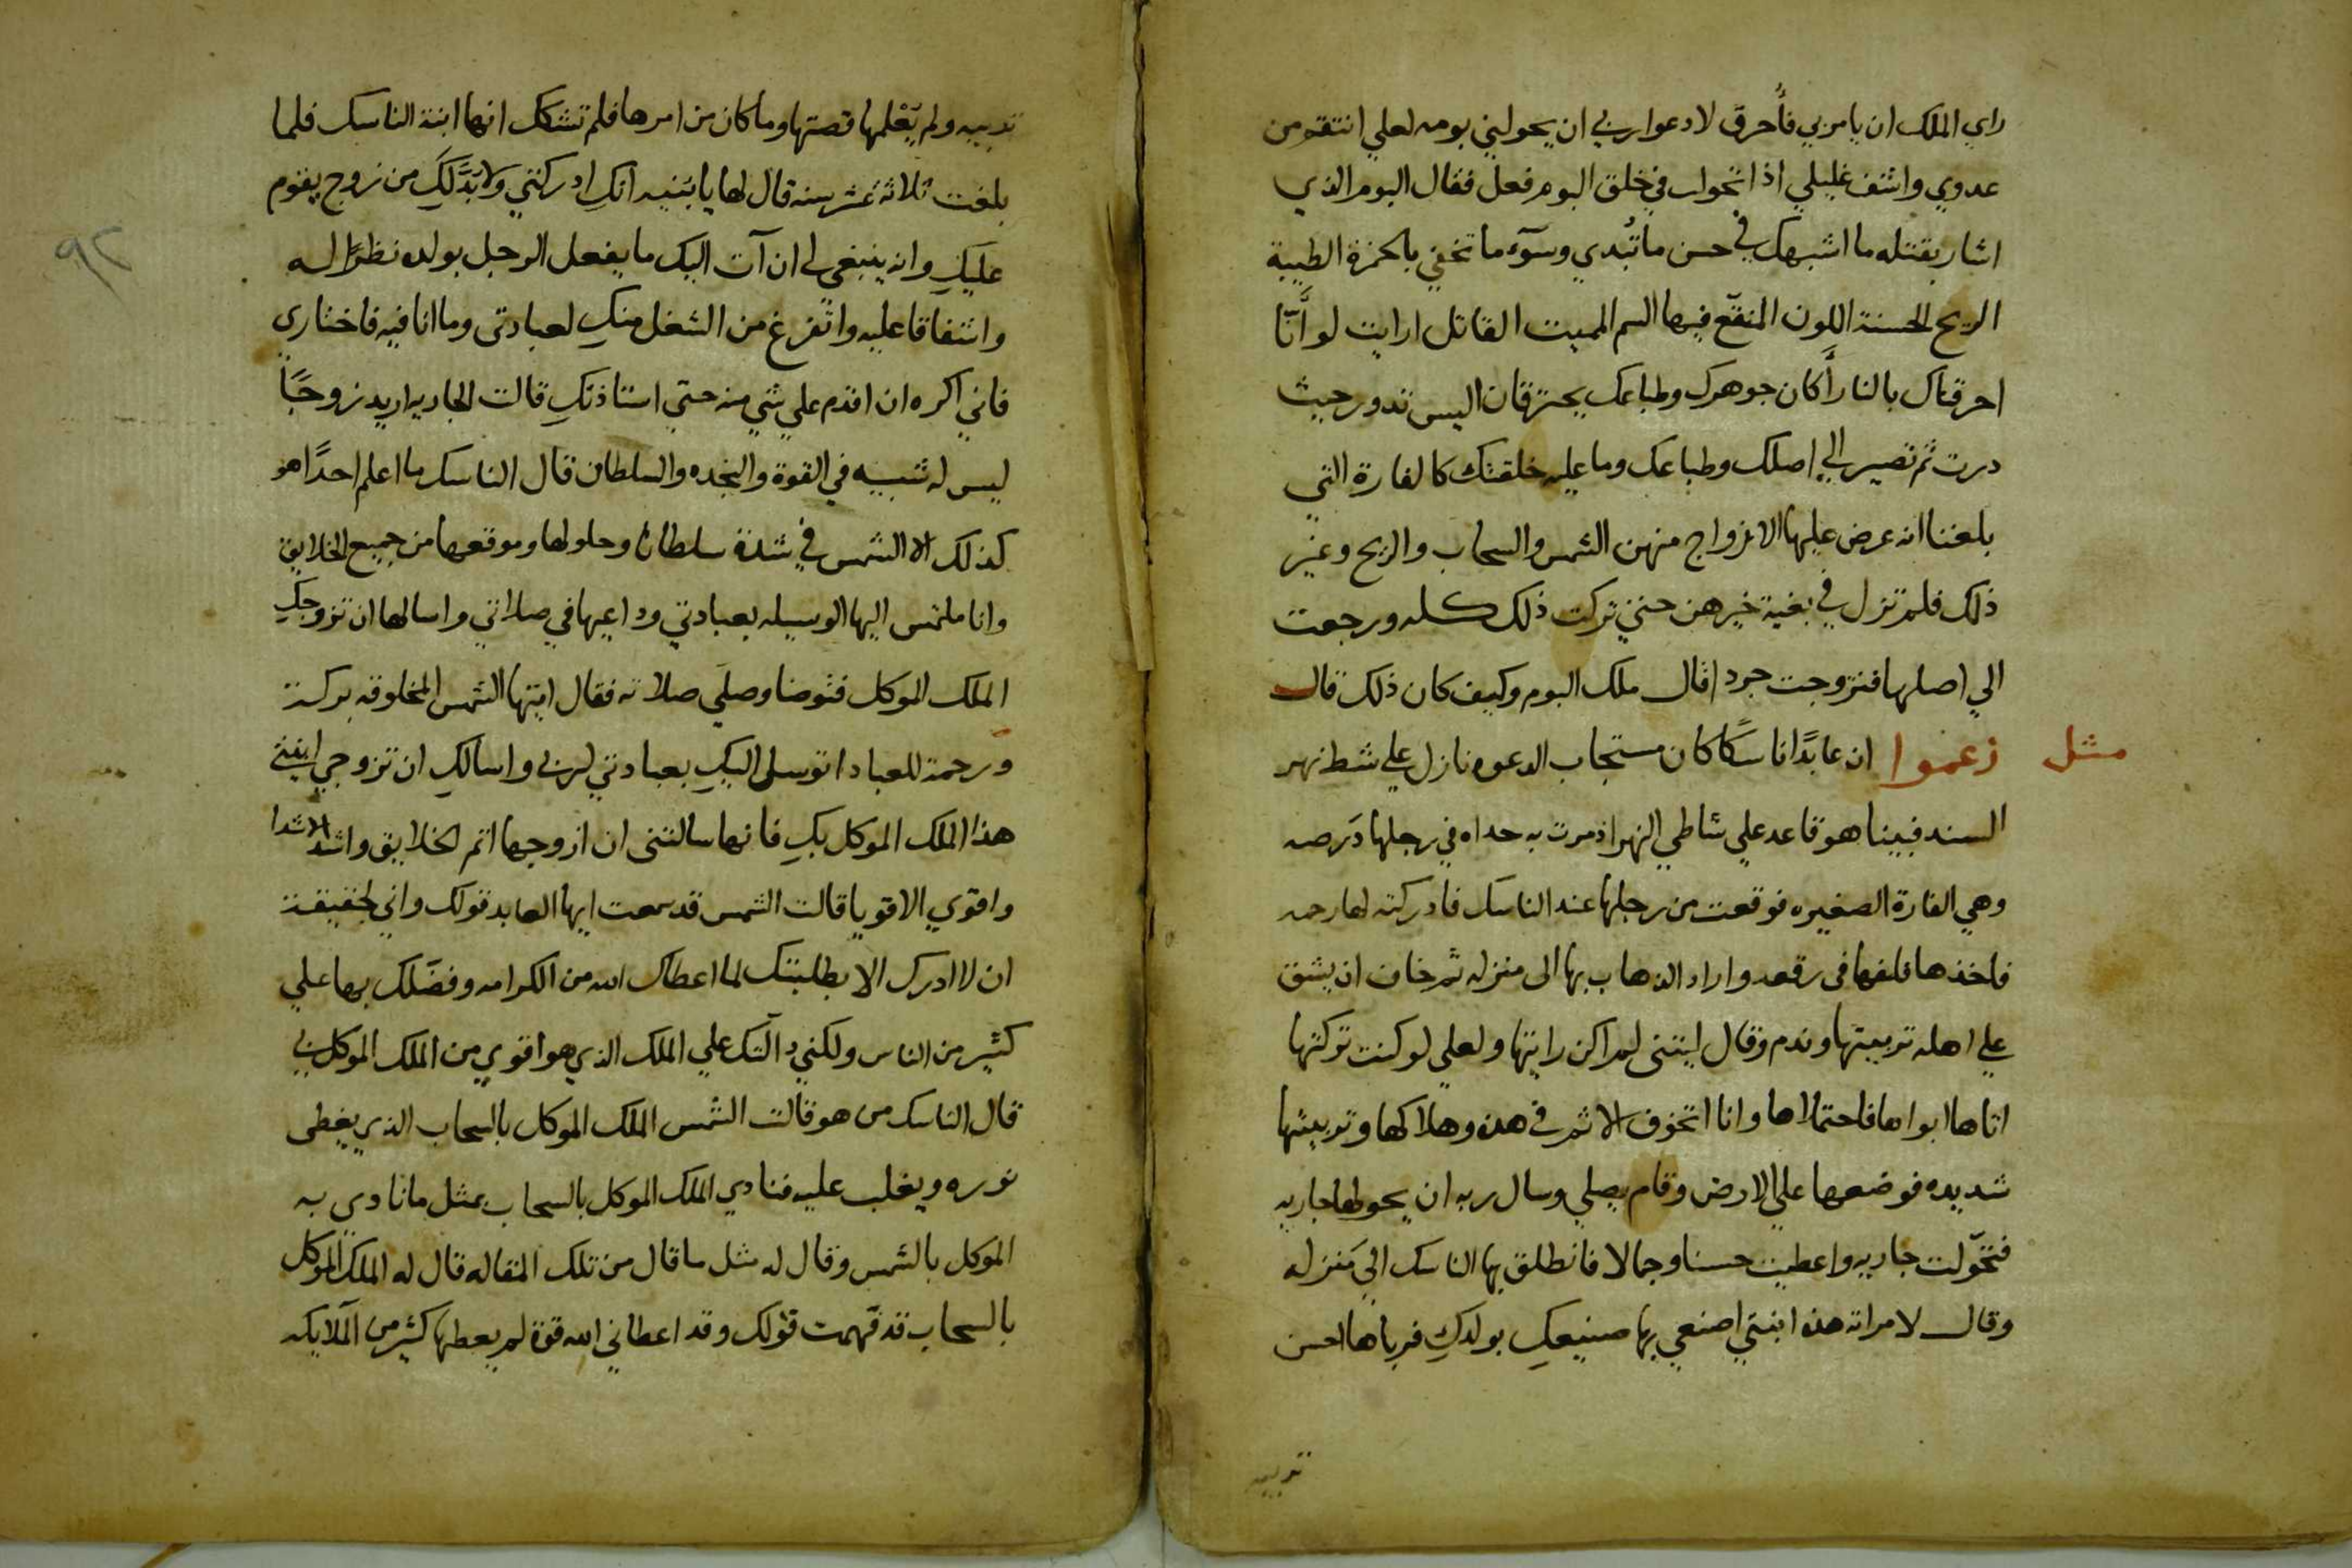 راي الملك ان يامر بي فأحرق لادعوا ربي ان يحولني بومه لعلي انتقم من
عدوي واشف غليلي اذا تحولت في خلق البوم فعل فقال البوم الذي
اشار بقتله ما اشبهك في حسن ما تُبدي وسوٓء ما تخفي بالخمرة الطيبة
الريح الحسنة اللون المنقع فيها السم المميت القاتل ارايت لو أنّا
احرقناك بالنار أكان جوهرك وطباعك يحترقان اليس تدور حيث
درت ثم تصير الي اصلك وطباعك وما عليه خلقتك كالفارة التي
بلغنا انه عرض عليها الازواج منهن الشمس والسحاب والريح وغير
ذلك فلم تزل في بغية خيرهن حتي تركت ذلك كله ورجعت
الي اصلها فتزوجت جردا قال ملك البوم وكيف كان ذلك قال
مثل زعموا ان عابدًا ناسكًا كان مستجاب الدعوه نازل علي شط نهر
السند فبينا هو قاعد علي شاطي النهر اذ مرت به حداه في رجلها دَرصه
وهي الفارة الصغيره فوقعت من رجلها عند الناسك فادركته لها رحمه
فاخذها فلفها فى رقعه واراد الذهاب بها الى منزله ثم خاف ان يشق
علي اهله تربيتها وندم وقال ليتنى لم اكن رايتها ولعلي لو كنت تركتها
اتاها ابواها فاحتملاها وانا اتخوف الاثم في هذه وهلاكها وتربيتها
شديده فوضعها علي الارض وقام يصلي وسال ربه ان يحولها جاريه
فتحوّلت جاريه واعطيت حسنا وجمالا فانطلق بها الناسك الي منزله
وقال لامراته هذه ابنتي اصنعي بها صنيعكِ بولدكِ فرباها احسن
تربيه
٩٢
تربيه ولم يَعْلمها قصتها وما كان من امرها فلم تشكك انها ابنة الناسك فلما
بلغت ثلاثة عشر سنه قال لها يا بُنيه انكِ ادركتي ولا بُدَّ لَكِ من زوج يقوم
عليكِ وانه ينبغي لي ان آت اليك ما يفعل الرجل بولده نظرًا له
واشفاقا عليه واتفرغ من الشغل منكِ لعبادتى وما انا فيه فاختاري
فاني اكره ان اقدم علي شي منه حتي استاذنكِ قالت الجاريه اريد زوجًا
ليس له شبيه في القوة والنجده والسلطان قال الناسك ما اعلم احدًا هو
كذلك الا الشمس في شدة سلطانها وحلولها وموقعها من جميع الخلايق
وانا ملتمس اليها الوسيله بعبادتي وداعيها في صلاتي واسالها ان تزوجكِ
الملك الموكل فتوضا وصلي صلاته فقال ايتها الشمس المخلوقه بركة
ورحمة للعباد اتوسل اليكِ بعبادتي لربي واسالكِ ان تزوجي ابنتي
هذا الملك الموكل بكِ فانها سالتنى ان ازوجها اتم الخلايق واشد الاشدا
واقوي الاقويا قالت الشمس قد سمعت ايها العابد قولك واني لحقيقة
ان لا ادرك الا بطلبتك لما اعطاك الله من الكرامه وفضّلك بها علي
كثير من الناس ولكني دالّتك علي الملك الذي هو اقوي من الملك الموكل بي
قال الناسك من هو قالت الشمس الملك الموكل بالسحاب الذي يغطى
نوره ويغلب عليه فنادي الملك الموكل بالسحاب بمثل ما نادي به
الموكل بالشمس وقال له مثل ما قال من تلك المقاله قال له الملك الموكل
بالسحاب قد فهمت قولك وقد اعطاني الله قوة لم يعطها كثير من الملايكه